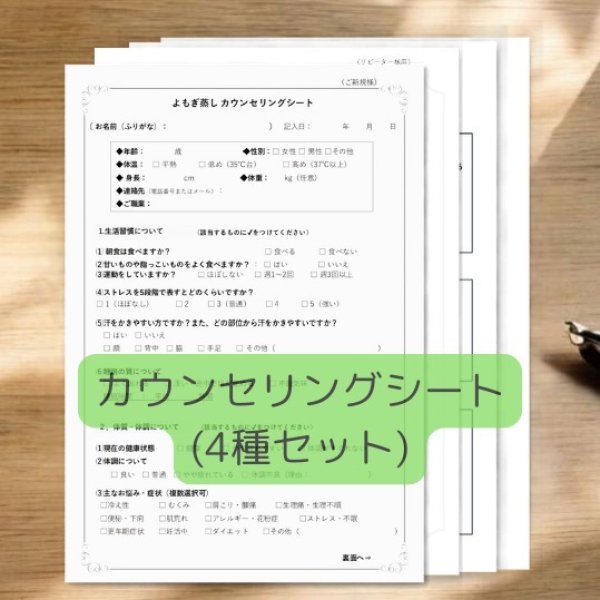 (リピーター様用)
(ご新規様)
よもぎ蒸し カウンセリングシート
(お名前（ふりがな）： ) 記入日： 年 月 日
◆年齢： 歳 ◆性別：□ 女性 □ 男性 □その他
◆体温： □ 平熱 □ 低め（35℃台） □ 高め（37℃以上）
◆身長： cm ◆体重： kg（任意）
◆連絡先（電話番号またはメール）：
◆ご職業：
1.生活習慣について （該当するものに✓をつけてください）
① 朝食は食べますか？ □ 食べる □ 食べない
②甘いものや脂っこいものをよく食べますか？：□ はい □ いいえ
③運動をしていますか？ □ ほぼしない □ 週1〜2回 □ 週3回以上
④ストレスを5段階で表すとどのくらいですか？
□ 1（ほぼなし） □ 2 □ 3（普通） □ 4 □ 5（強い）
⑤汗をかきやすい方ですか？また、どの部位から汗をかきやすいですか？
□ はい □ いいえ
□ 顔 □ 背中 □ 脇 □ 手足 □ その他（ ）
カウンセリングシート
(4種セット)
2．体質・体調について （該当するものに✓をつけてください）
①現在の健康状態
②体調について
□ 良い □ 普通 □ やや疲れている □ 体調不良（理由： ）
③主なお悩み・症状（複数選択可）
□冷え性 □むくみ □肩こり・腰痛 □生理痛・生理不順
□便秘・下痢 □肌荒れ □アレルギー・花粉症 □ストレス・不眠
□更年期症状 □妊活中 □ダイエット □その他（ ）
裏面へ⇒